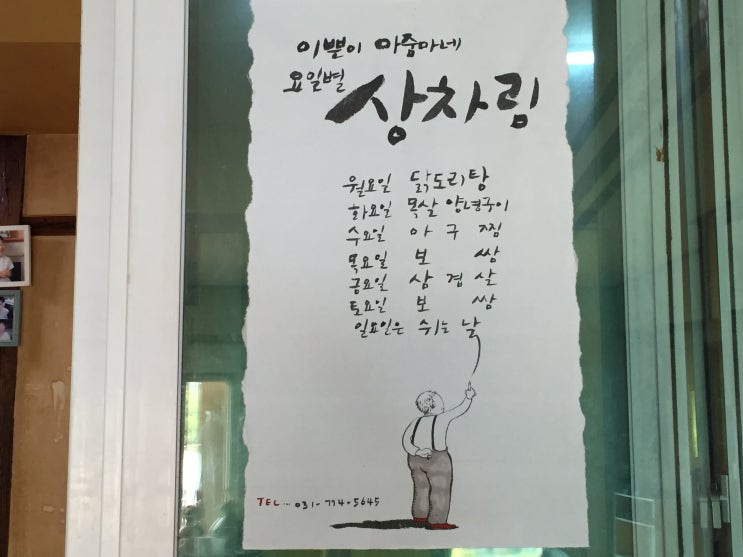 이쁜이 아줌마네
요일별 상차림
월요일 닭도리탕
화요일 목살 양념구이
수요일 아구찜
목요일 보쌈
금요일 삼겹살
토요일 보쌈
일요일은 쉬는 날
TEL... 031-774-5645